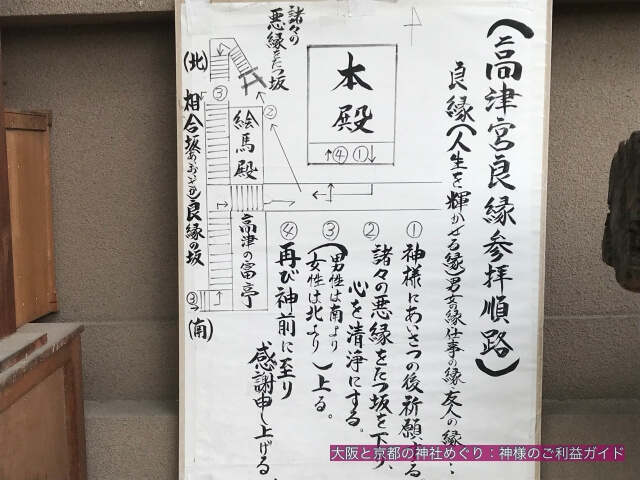 (高津宮良縁参拝順路)
良縁(人生を輝かせる縁)男女の縁仕事の縁・友人の縁…
①
神様にあいさつの後祈願する
②
諸々の悪縁をたつ坂を下り、
心を清浄にする。
③
(男性は南より
女性は北より)上る。
④
再び神前に至り
感謝申し上げる。
本殿
↑④①↓
諸々の
悪縁をたつ坂
②
(北)
③
絵馬殿
高津の富亭
相合坂(あいおいざか)良縁の坂
③→
(南)
大阪と京都の神社めぐり:神様のご利益ガイド